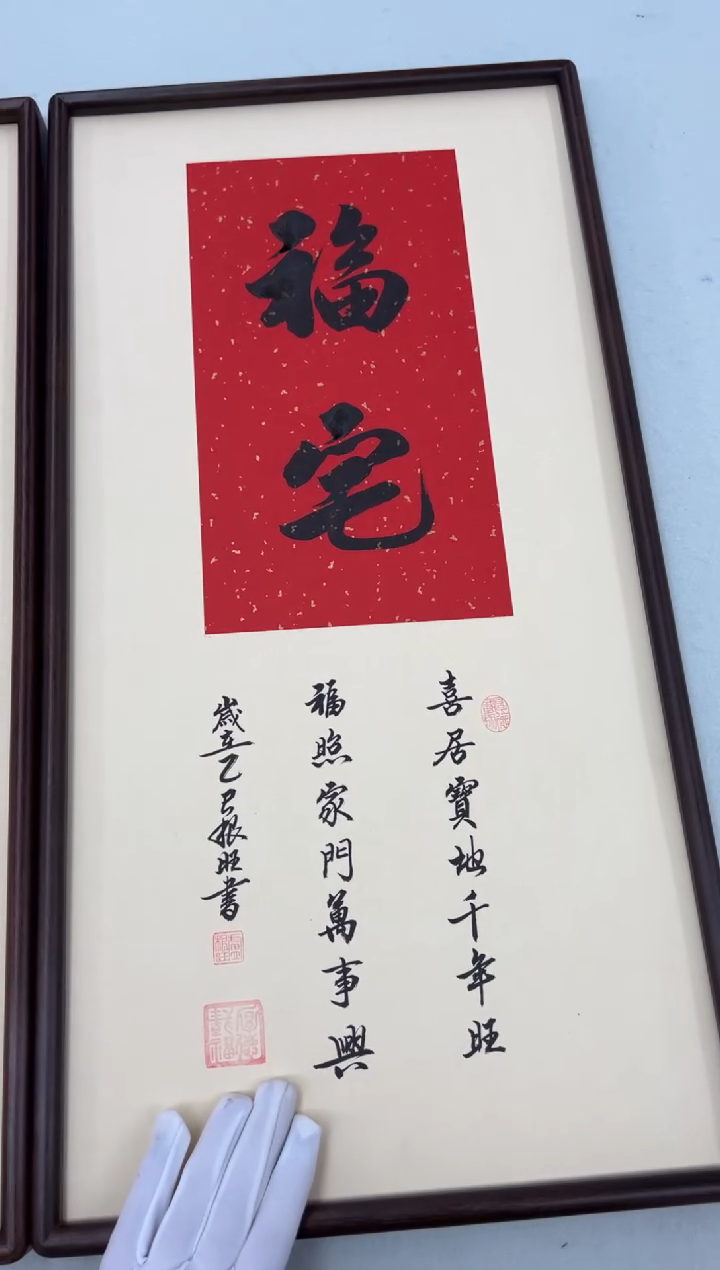 福宅
喜居寶地千年旺
福照家門萬事興
歲在乙巳根旺書